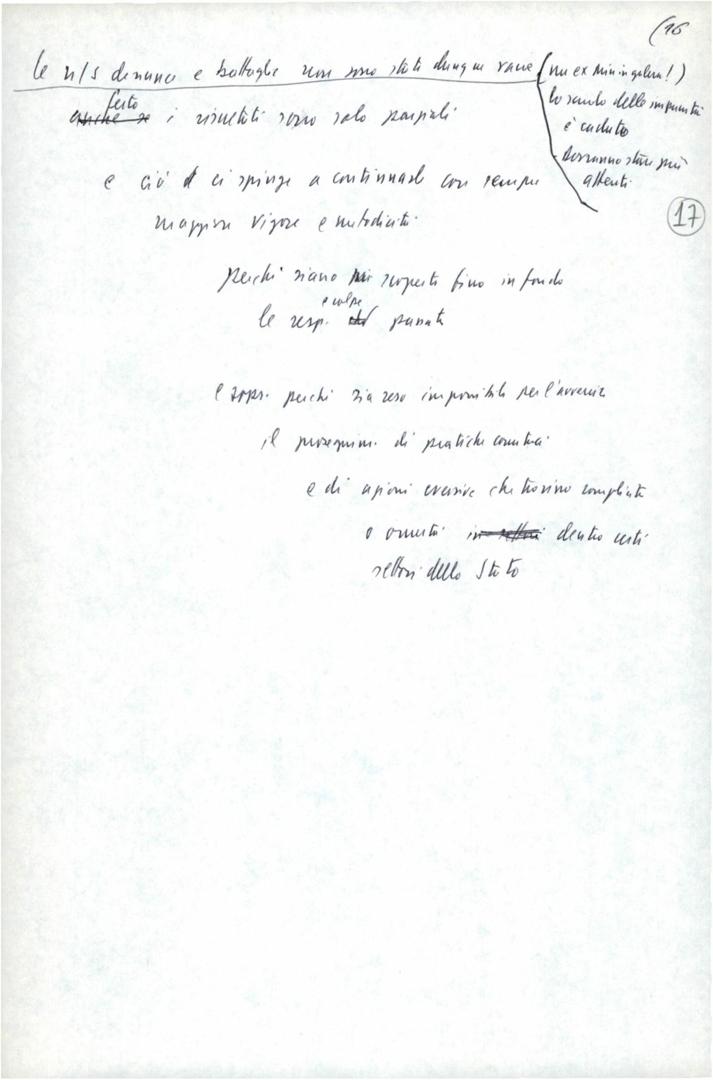 (16
le n/s denunce e battaglie non sono state dunque vane
(un ex Min in galera!)
lo scudo dell'impunità
è caduto
- dovranno stare più
attenti
17
certo
anche se i risultati sono solo parziali
e ciò ci spinge a continuarle con sempre
maggiore vigore e metodicità
perché siano scoperte fino in fondo
e colpe
le resp. passate
e sopr. perché sia reso impossibile per l'avvenire
il proseguim. di pratiche corruttrici
e di azioni eversive che trovino complicità
o omertà in settori dentro certi
settori dello Stato